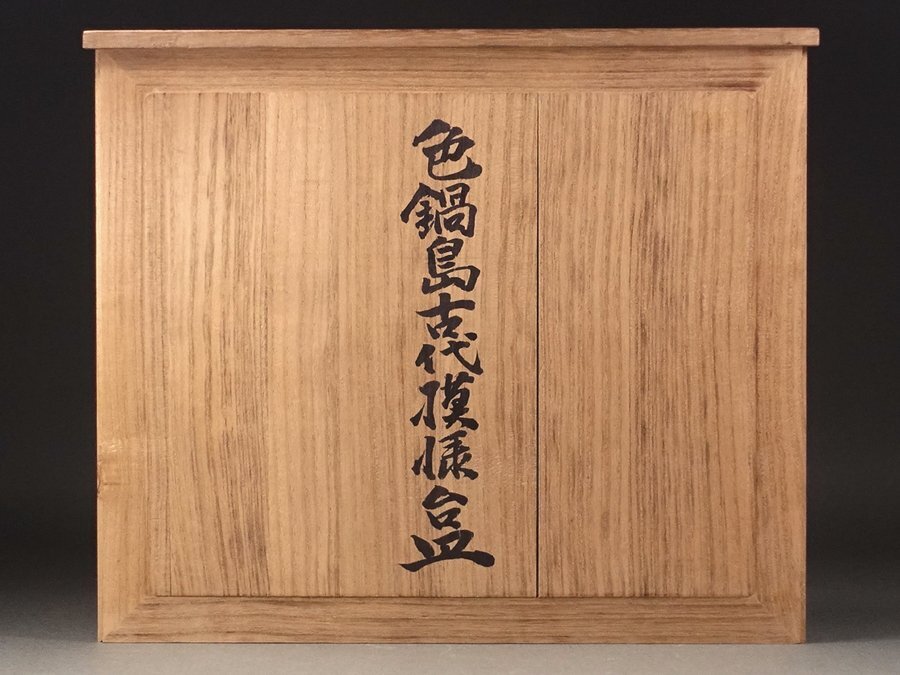 色鍋島古代模様台皿